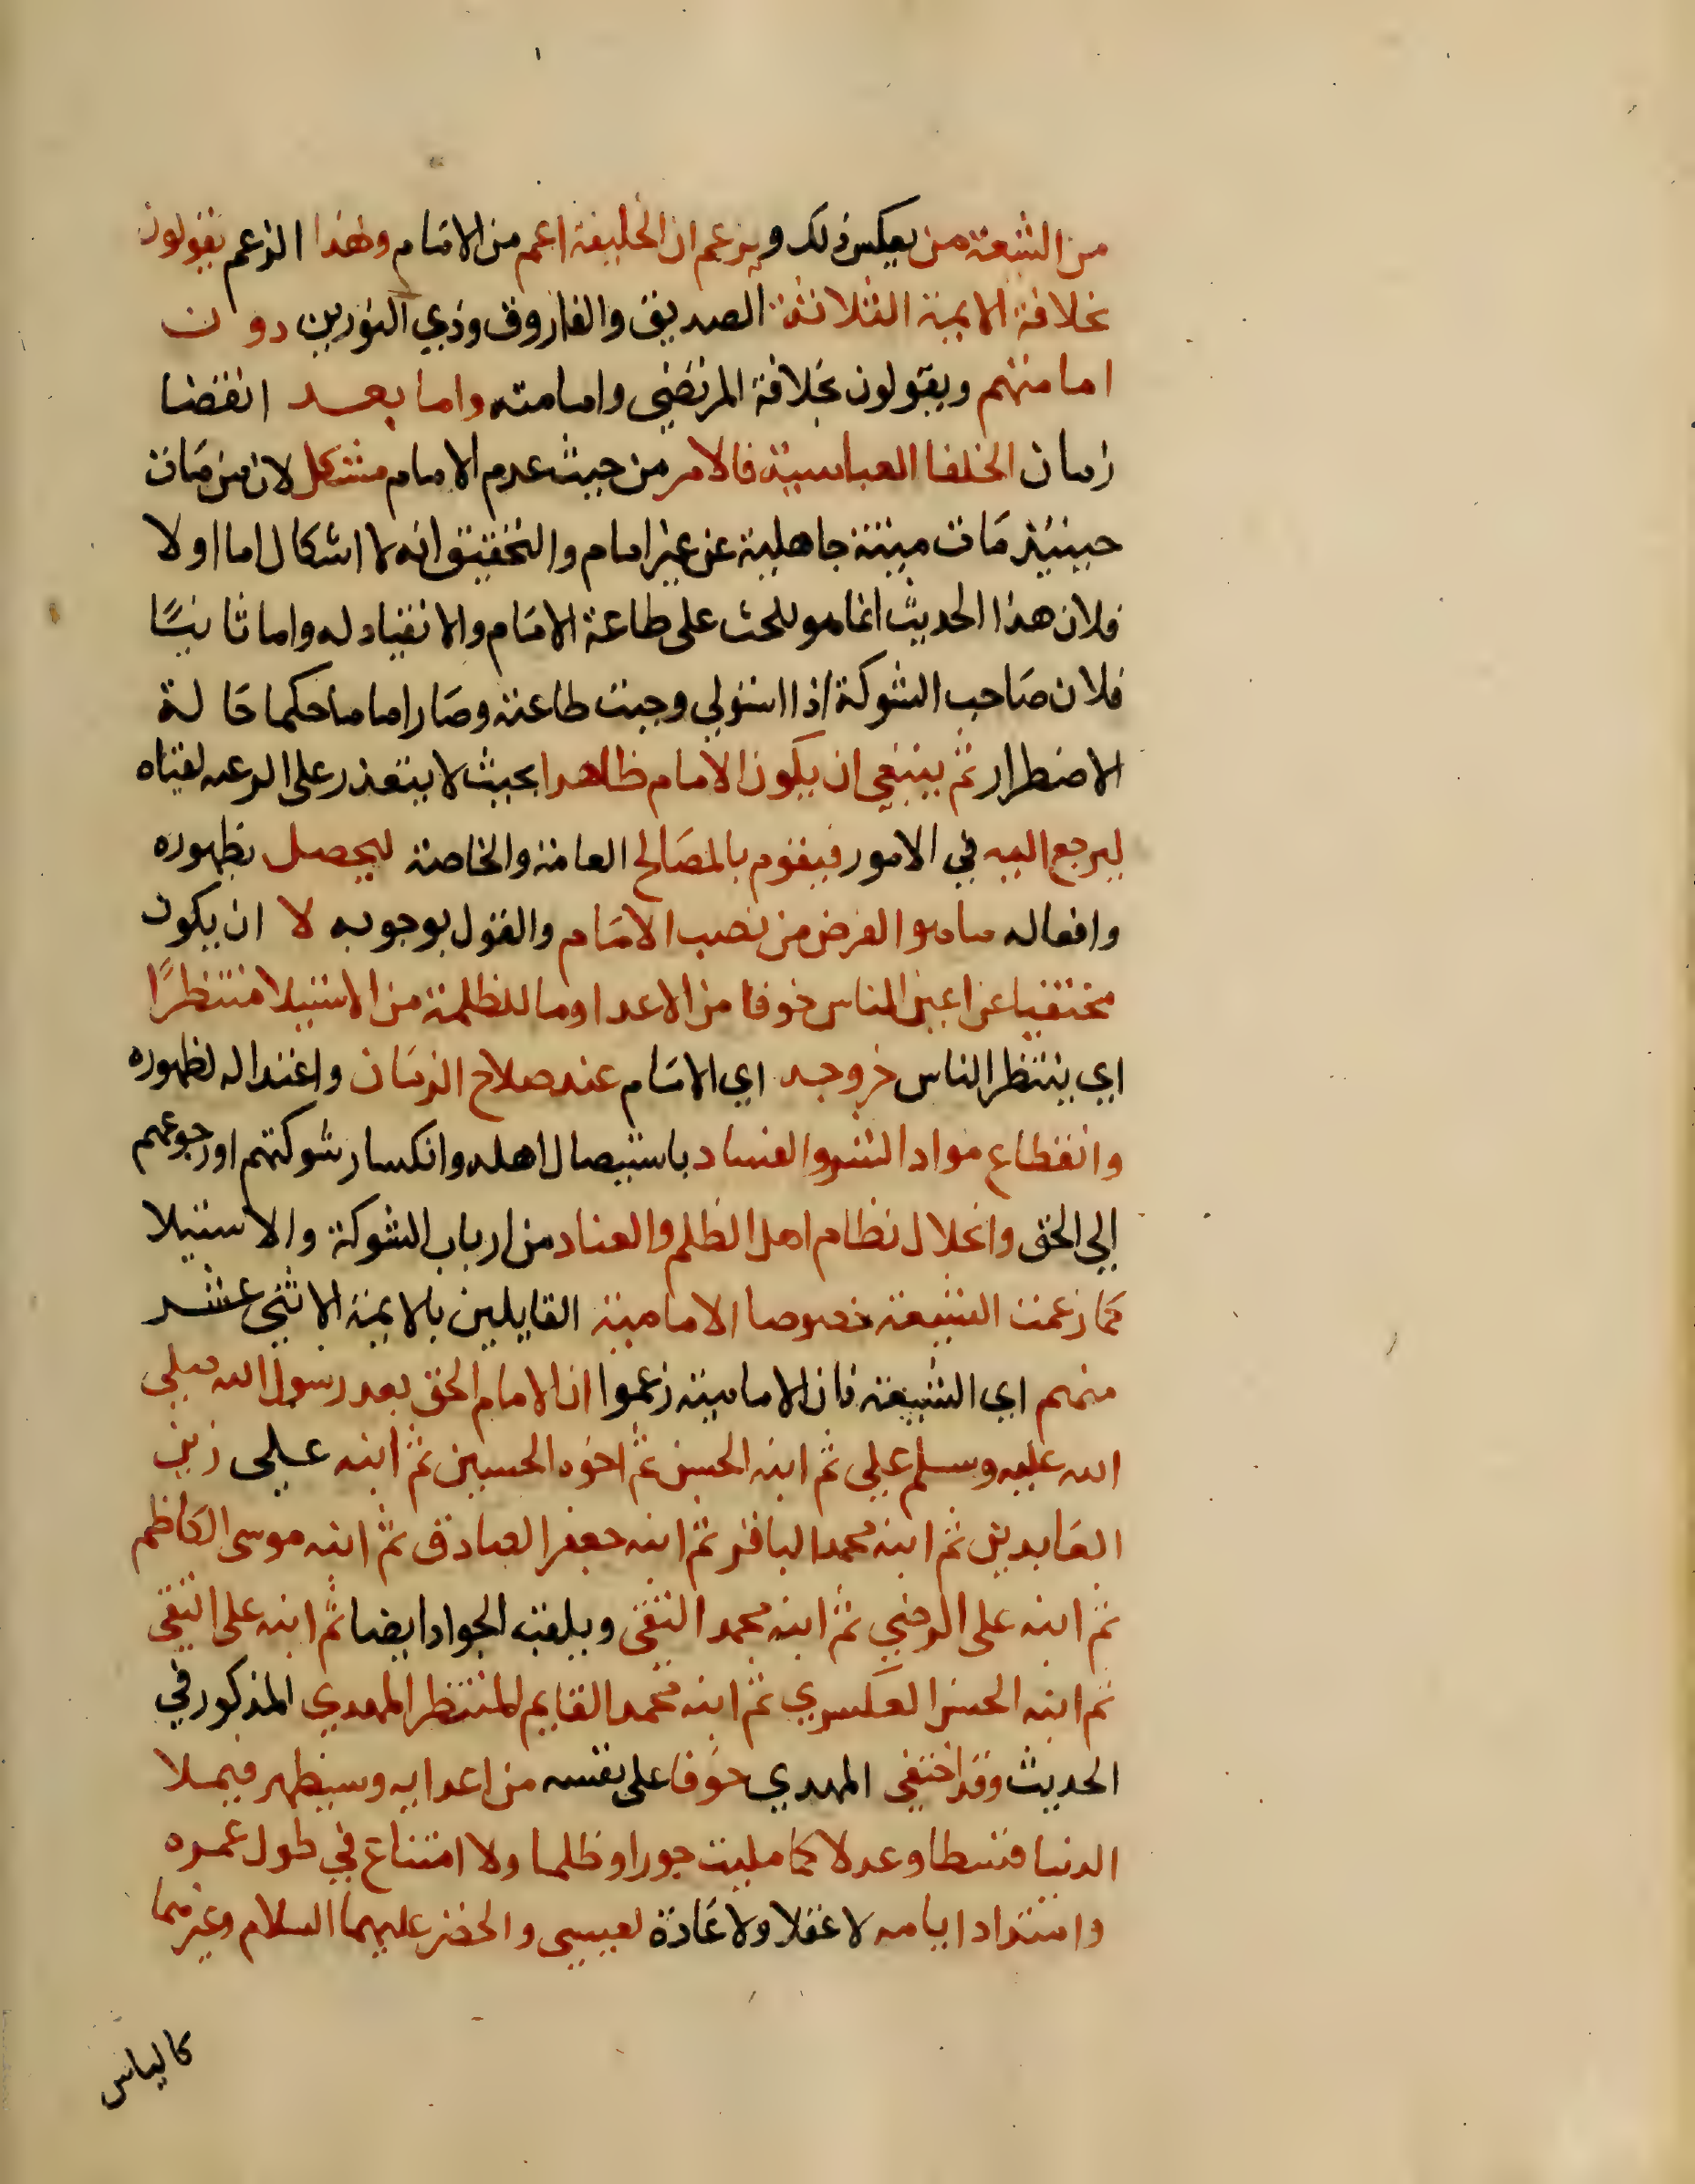 من الشيعة من يعكس ذلك ويزعم ان الخليفة اعم من الامام ولهذا الزعم يقولون
بخلافة الايمة الثلاثة الصديق والفاروق وذي النورين دون
امامتهم ويقولون بخلافة المرتضي وامامته واما بعد انقضا
زمان الخلفا العباسية فالامر من حيث عدم الامام مشكل لان من مات
حينيذ مات ميتة جاهلية عن غير امام والتحقيق انه لا اشكال اما اولا
فلان هذا الحديث انما هو للحث على طاعة الامام والانقياد له واما ثانيًا
فلان صاحب الشوكة اذا استولي وجبت طاعته وصار اماما حكما حالة
الاضطرار ثم ينبغي ان يكون الامام ظاهرا بحيث لا يتعذر على الرعيه لقياه
ليرجع اليه في الامور فيقوم بالمصالح العامة والخاصة ليحصل بظهوره
وافعاله ما هو الغرض من نصب الامام والقول بوجوبه لا ان يكون
مختفيا عن اعين الناس خوفا من الاعدا وما للظلمة من الاستيلا منتظرًا
اي ينتظر الناس خروجه اي الامام عند صلاح الزمان واعتداله لظهوره
وانقطاع مواد الشر والفساد باستيصال اهله وانكسار شوكتهم او رجوعهم
الي الحق وانحلال نظام اهل الظلم والعناد من ارباب الشوكة والاستيلا
كما زعمت الشيعة خصوصا الامامية القايلين بالايمة الاثني عشر
منهم اي الشيعة فان الامامية زعموا ان الامام الحق بعد رسول الله صلي
الله عليه وسلم علي ثم ابنه الحسن ثم اخوه الحسين ثم ابنه علي زين
العابدين ثم ابنه محمد الباقر ثم ابنه جعفر الصادق ثم ابنه موسى الكاظم
ثم ابنه على الرضي ثم ابنه محمد التقى ويلقب الجواد ايضا ثم ابنه على النقي
ثم ابنه الحسن العسكري ثم ابنه محمد القايم المنتظر المهدي المذكور في
الحديث وقد اختفي المهدي خوفا على نفسه من اعدايه وسيظهر فيملا
الدنيا قسطا وعدلا كما مليت جورا وظلما ولا امتناع في طول عمره
وامتداد ايامه لا عقلا ولا عادة لعيسى والخضر عليهما السلام وغيرهما
كالياس